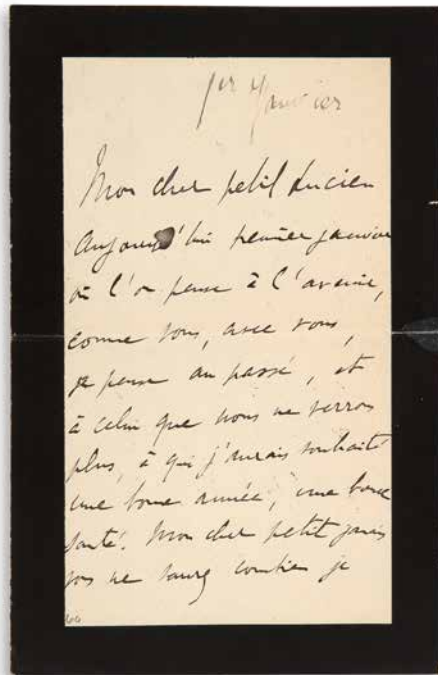 1er Janvier
Mon cher petit Lucien
Aujourd'hui premier janvier
où l'on pense à l'avenir,
comme vous, avec vous,
je pense au passé, et
à celui que nous ne verrons
plus, à qui j'aurais souhaité
une bonne année, une bonne
santé. Mon cher petit jamais
vous ne saurez combien je